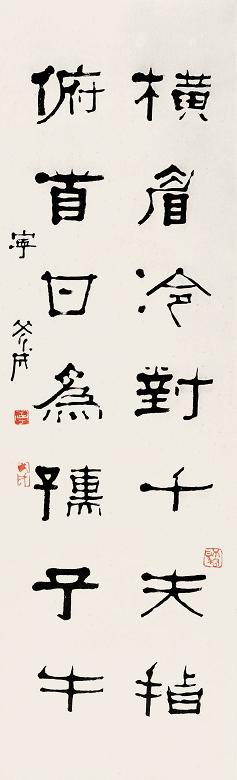 橫眉冷對千夫指
俯首甘爲孺子牛
寧斧成